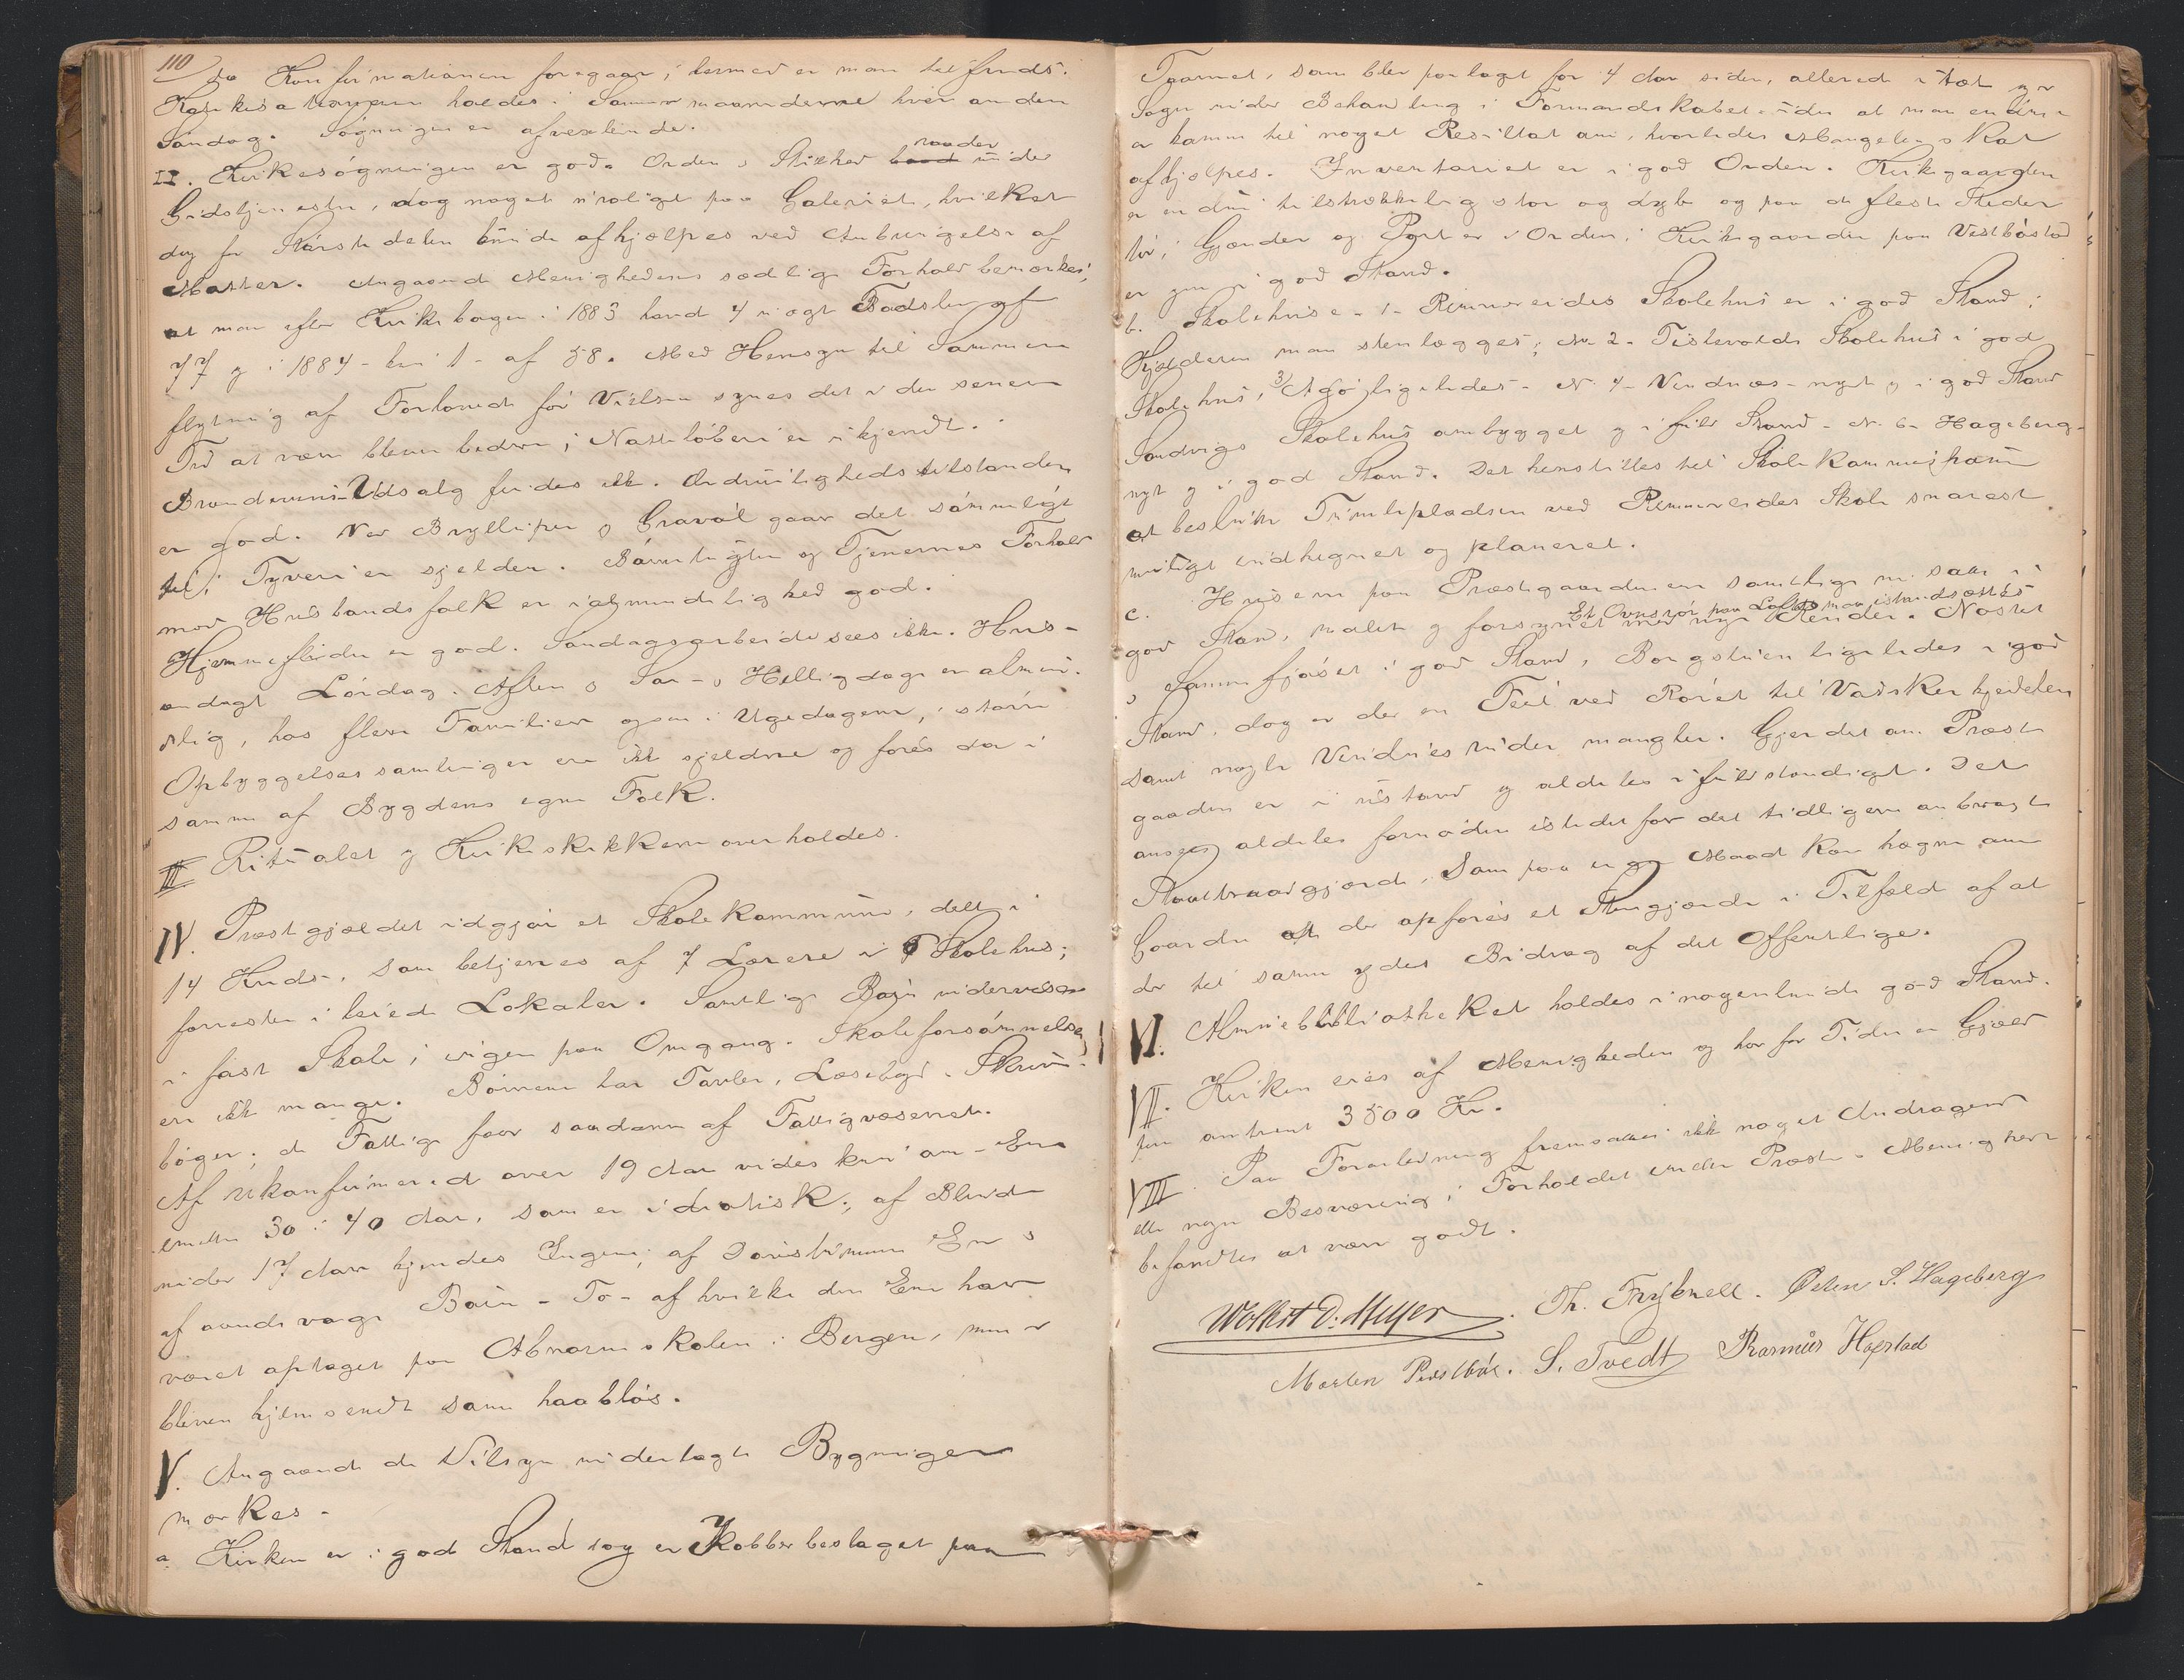 110
da Konfirmationen foregaar; hermed er man tilfreds.
Katekisationen holdes i Sommermaanderne hver anden
Søndag. Søgningen er afvexlende.
II. Kirkesøgningen er god. Orden & Stilhed raader under
Gudstjenesten, dog noget uroligt paa Galeriet, hvilket
dog for Størstedelen kunde afhjælpes ved Anbringelse af
Matter. Angaaende Menighedens sædelige Forhold bemærkes,
at man efter Kirkebogen i 1883 havde 4 uægte Fødsler af
77 og i 1884 - kun 1 - af 58. Med Hensyn til Sammen
flytning af Forlovede før Vielsen synes det i den senere
Tid at være blevet bedre; Natteløberi er ukjendt.
Brændeviins-Udsalg findes ikke. Ædrueligheds tilstanden
er god. Ved Brylluper & Gravøl gaar det sømmeligt
til; Tyveri er sjelden. Børnetugten og Tjenernes Forhold
mod Husbondsfolk er i almindelighed god.
Hjemmefliden er god. Søndagsarbeide sees ikke. Hus-
andagt Lørdag-Aften & Søn- & Helligdage er almin-
delig, hos flere Familier ogsaa i Ugedagene, større
Opbyggelsessamlinger ere ikke sjeldne og føres da i
samme af Bygdens egne Folk.
III Ritualet og Kirkeskikkene overholdes.
IV. Præstegjældet udgjør et Skolekommune, delt i
14 Kreds, som betjenes af 7 Lærere i 6 Skolehus;
forresten i leiede Lokaler. Samtlige Børn undervises
i fast Skole; ingen paa Omgang. Skoleforsømmelser
ere ikke mange. Børnene har Tavler, Læsebog & Skrive-
bøger; de Fattige faar saadanne af Fattigvæsenet.
Af ukonfirmerede over 19 Aar vides kun om - En
imellem 30 i 40 Aar, som er idiotisk; af Blinde
under 17 Aar kjendes Ingen; af Døvstumme En &
af aandssvage Børn - To - af hvilke den Ene har
været optaget paa Abnormskolen i Bergen, men er
bleven hjemsendt som haabløs.
V. Angaaende de Tilsyn underlagte Bygninger
mærkes -
a. Kirken er i god Stand dog er Kobberbeslaget paa
Taarnet, som blev paalagt for 4 Aar siden, allerede utæt og er
Sagen under Behandling i Formandskabet uden at man endnu
er kommet til noget Resultat om, hvorledes Mangelen skal
afhjælpes. Inventariet er i god Orden. Kirkegaarden
er endnu tilstrækkelig stor og dyb og paa de fleste Steder
tør; Gjærder og Port er i Orden; Kirkegaarden paa Vestbøstad
er og i god Stand.
b. Skolehuse - 1 - Rimmereides Skolehus er i god Stand;
Kjælderen maa stenlægges; No. 2 - Tislevolds Skolehus i god
Skolehus, 3) ligeledes - No. 4 - Vindnæs - nyt og i god Stand
Sandvigs Skolehus ombygget og i fuld Stand - No. 6 - Hageberg -
nyt og i god Stand. Det henstilles til Skolekommissionen
at beslutte Tumlepladsen ved Rimmereides Skole snarest
muligt indhegnet og planeret.
c. Husene paa Præstegaarden ere samtlige nu saa i
Et Ovnsrør paa Loftet maa istandsættes
god Stand, malet og forsynet med nye Render. Nøstet
& Sommerfjøset i god Stand, Borgstuen ligeledes i god
Stand, dog er der en Feil ved Røret til Vaskerkjedelen
samt nogle Vinduesruder mangler. Gjerdet om Præste
gaarden er i ustand og aldeles ufuldstændigt. Det
ansees aldeles fornøden istedetfor det tidligere anbragte
Staaltraadgjærde, som paa ingen Maad kan hægne om
Gaarden at der opføres et Stengjærde i Tilfælde af at
der til samme ydes Bidrag af det Offentlige.
VI. Almuebibliotheket holdes i nogenlunde god Stand.
VII. Kirken eies af Menigheden og har for Tiden en Gjæld
paa omtrent 3500 Kr.
VIII. Paa Foranledning fremsattes ikke noget Andragende
eller nogen Besværing; Forholdet mellem Præst & Menighed
befandtes at være godt.
Wolkert D: Meyer. Th. Frybnell. Østen S. Hageberg
Morten Prestbø. S. Tvedt Rasmus Hopstad